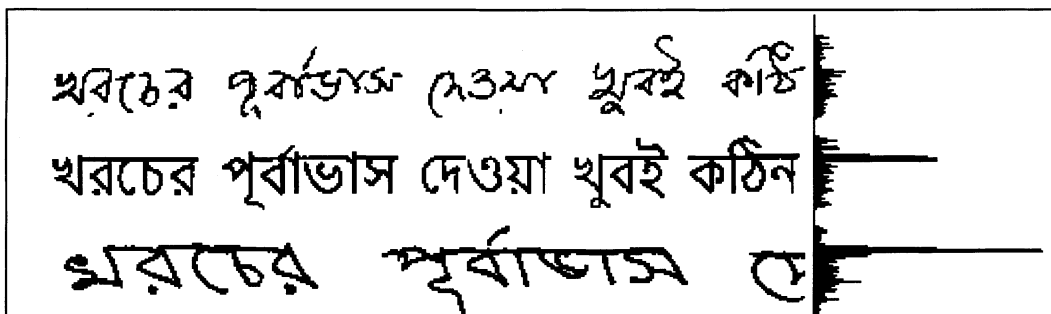 খরচের পূর্বাভাস দেওয়া খুবই কঠি
খরচের পূর্বাভাস দেওয়া খুবই কঠিন
খরচের পূর্বাভাস দে